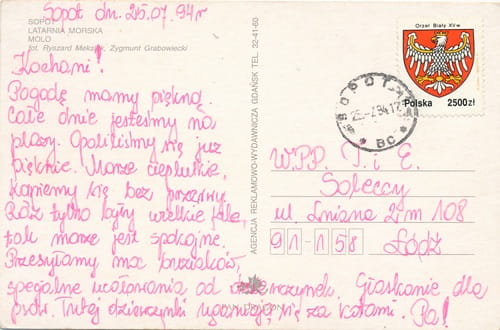 Sopot dn. 25.07.94r
SOPOT
LATARNIA MORSKA
MOLO
fot. Ryszard Meksiak, Zygmunt Grabowiecki
Kochani!
Pogodę mamy piękną.
Całe dnie jesteśmy na
plaży. Opaliliśmy się już
pięknie. Morze cieplutkie,
kąpiemy się bez przerwy
Raz tylko były wielkie fale,
tak morze jest spokojne.
Przesyłamy moc buziaków,
specjalne ucałowania od dziewczynek. Głaskanie dla
psów. Tutaj dziewczynki uganiają się za kotami. Pa!
AGENCJA REKLAMOWO-WYDAWNICZA GDAŃSK TEL. 32-41-60
Orzeł Biały XV w
Polska 2500zł
SOPOT
25.-7.94.17
BC
W.P.P. T. i E.
Soleccy
ul. Lniana 2 m 108
91-158 Łódź